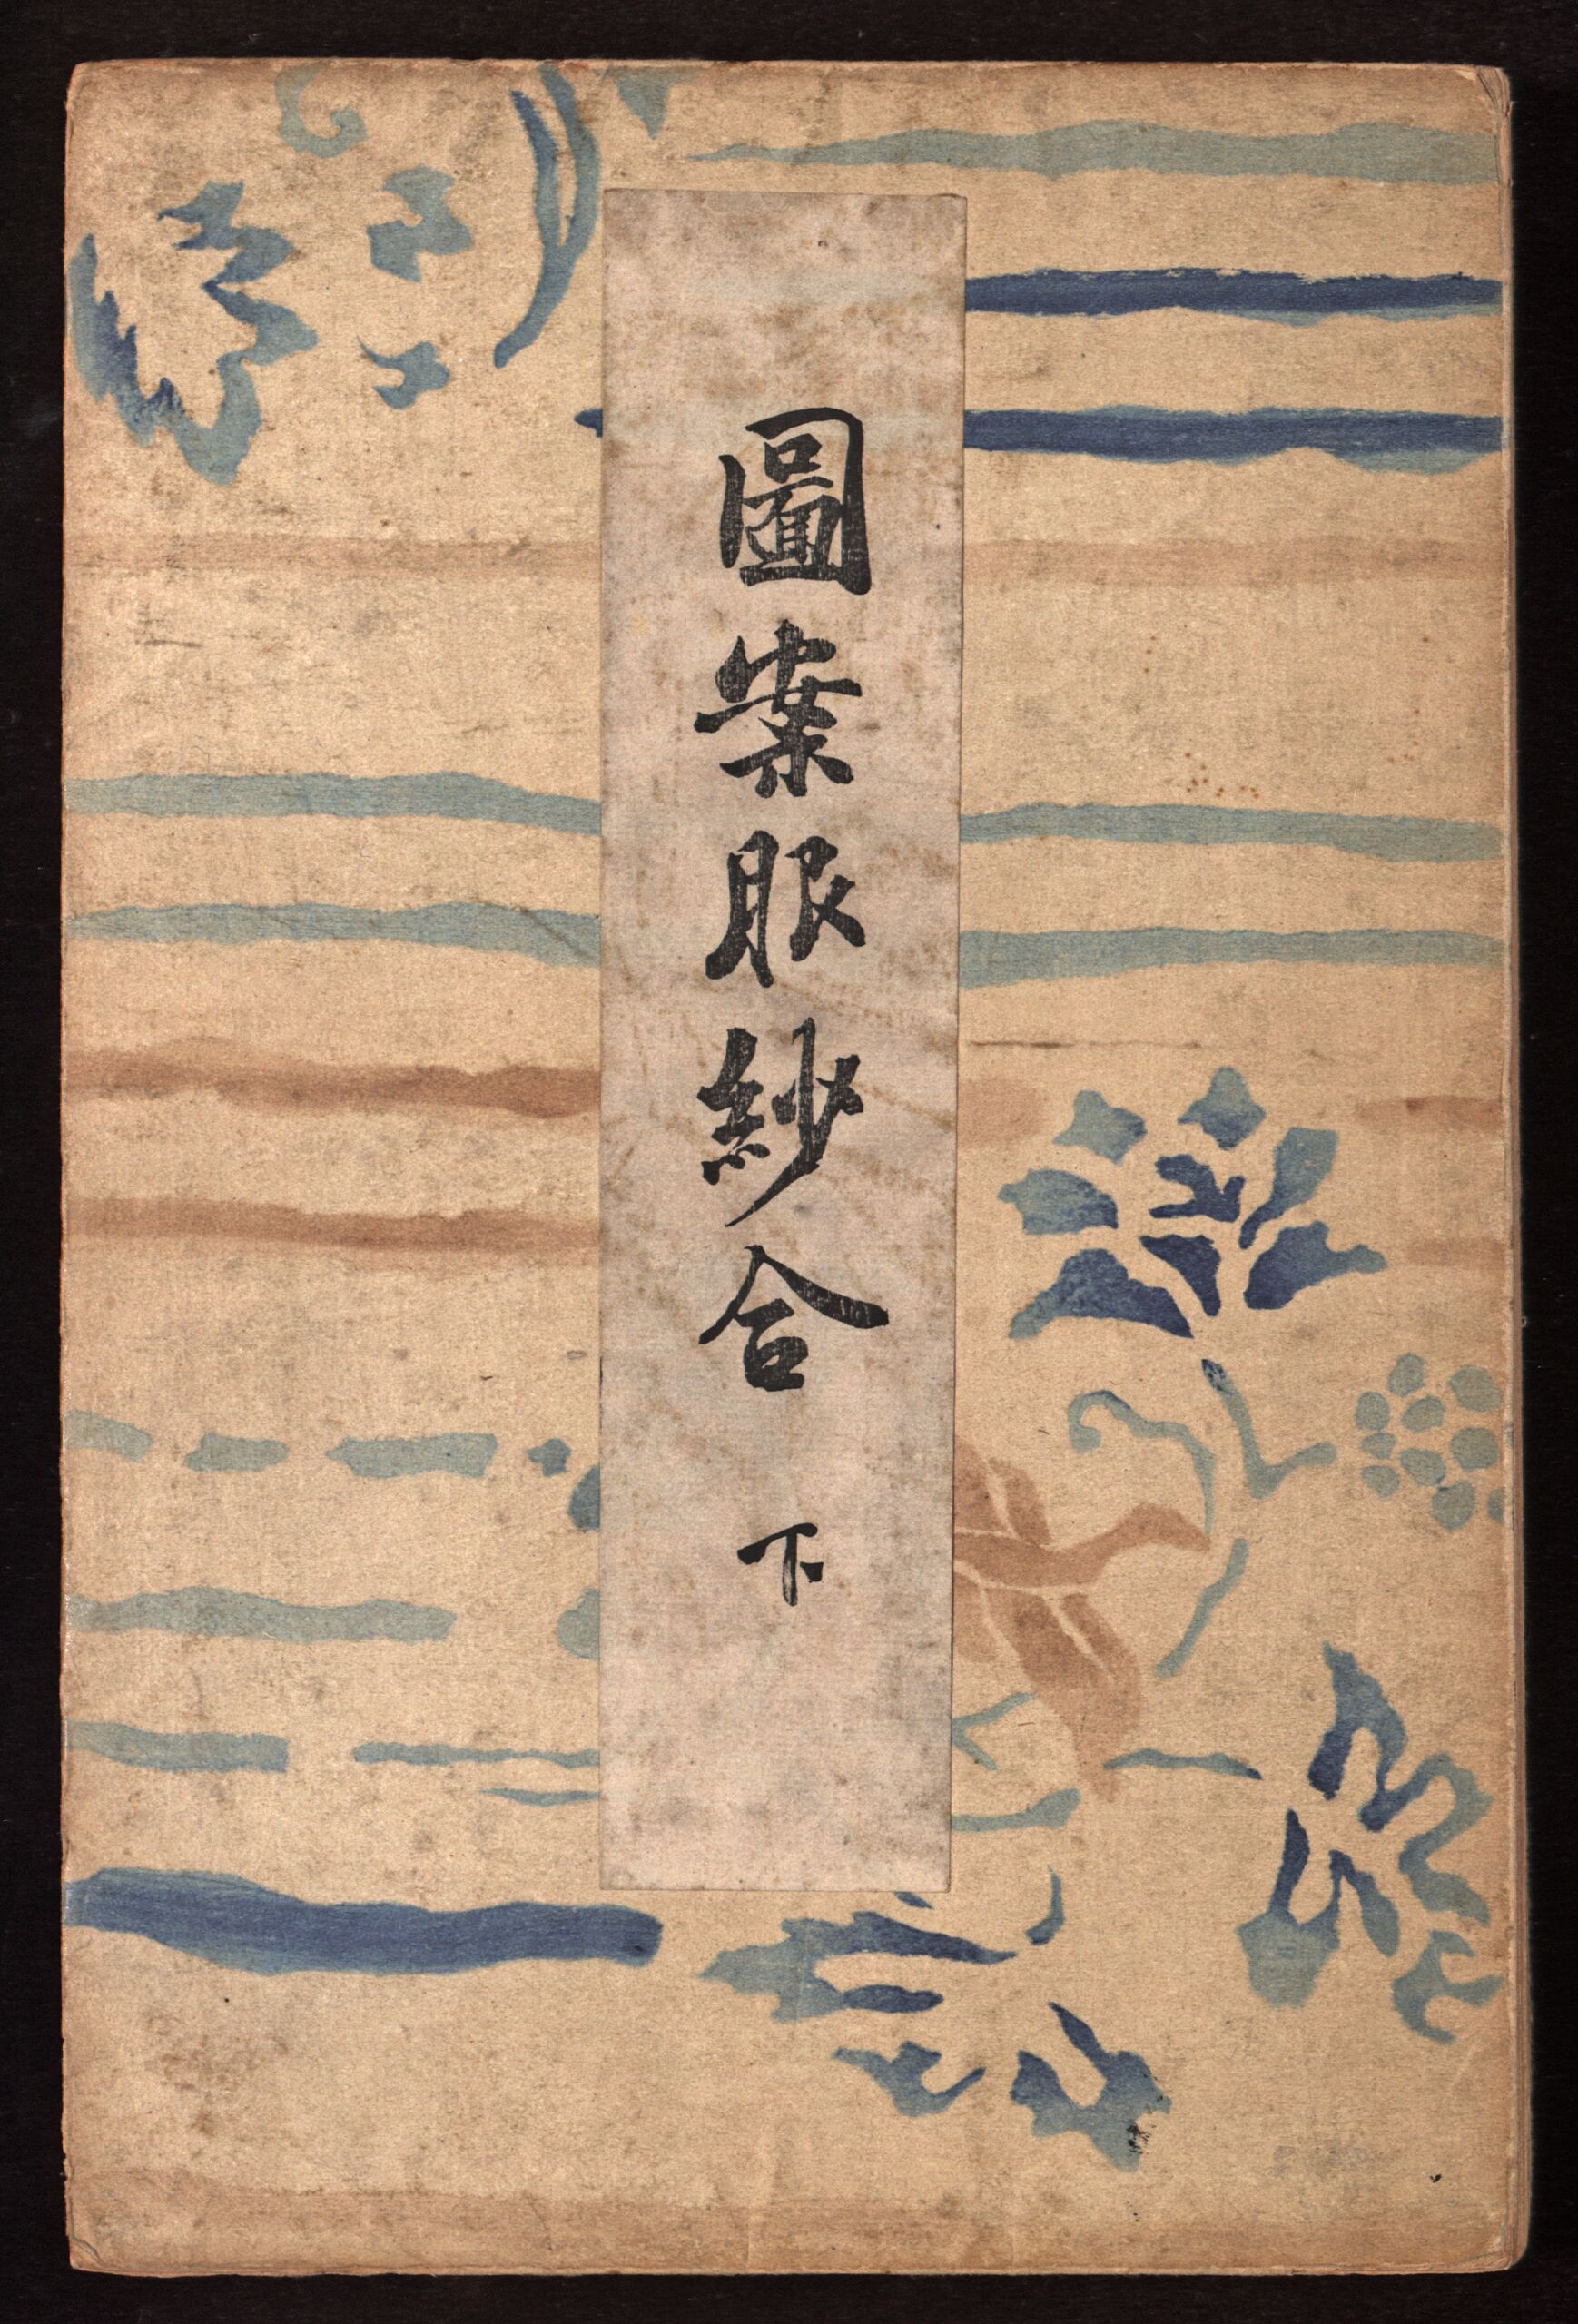 圖案服紗合 下